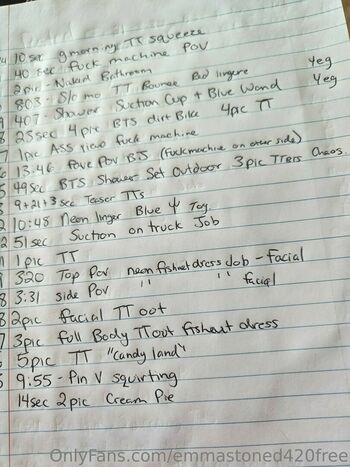 10 sec g morning TT squeeze
40 sec fuck machine POV
2pic - Naked Bathroom
803 - Slo mo TT Bounce Red lingere
407 - Shower Suction Cup + Blue Wand yeg
23sec 4 pic BTS dirt Bike 4pic TT yeg
1pic Ass view fuck machine
13:46 POV BJ (fuckmachine on other side)
49sec BTS Shower Set Outdoor 3pic Chaos
9+21+3 sec Teaser TTs
10:48 Neon linger Blue Ψ Toy
51 sec Suction on truck Job
1 pic TT
320 Top Pov neon fishnet dress Job - Facial
3:31 side Pov " " " facial
2pic facial TT oot
3pic full Body TT out fishent dress
5pic TT "candy land"
9:55 - Pin V squirting
14sec 2pic Cream Pie
OnlyFans.com/emmastoned420free